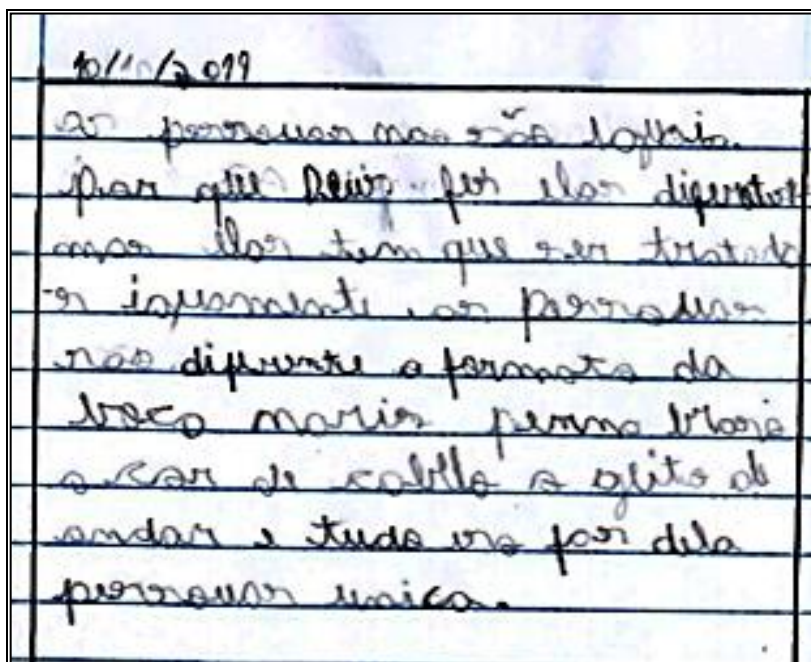 10/10/2019
as pessouas nao são iguais.
Por que Deus fes elas diferentes
mas elas tem que ser tratado
-s iguamente, as pessouas
são diferente o formato da
boca naris penna braço
a cor de cabelo o geito de
andar e tudo iso fas dela
pessouas unica.